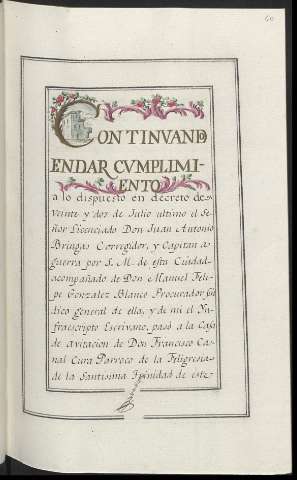 60
CONTINUAND
ENDAR CVMPLIMI-
ENTO
a lo dispuesto en decreto de-
veinte y dos de Julio ultimo el Se-
ñor Licenciado Don Juan Antonio
Bringas Corregidor, y Capitan a
guerra por S. M. de esta Ciudad-
acompañado de Don Manuel Feli-
pe Gonzalez Blanco Procurador Sin
dico general de ella, y de mi el Yn
fraescripto Escrivano, pasó a la Casa
de avitacion de Don Francisco Ca-
nal Cura Parroco de la Feligresia-
de la Santisima Trinidad de este-